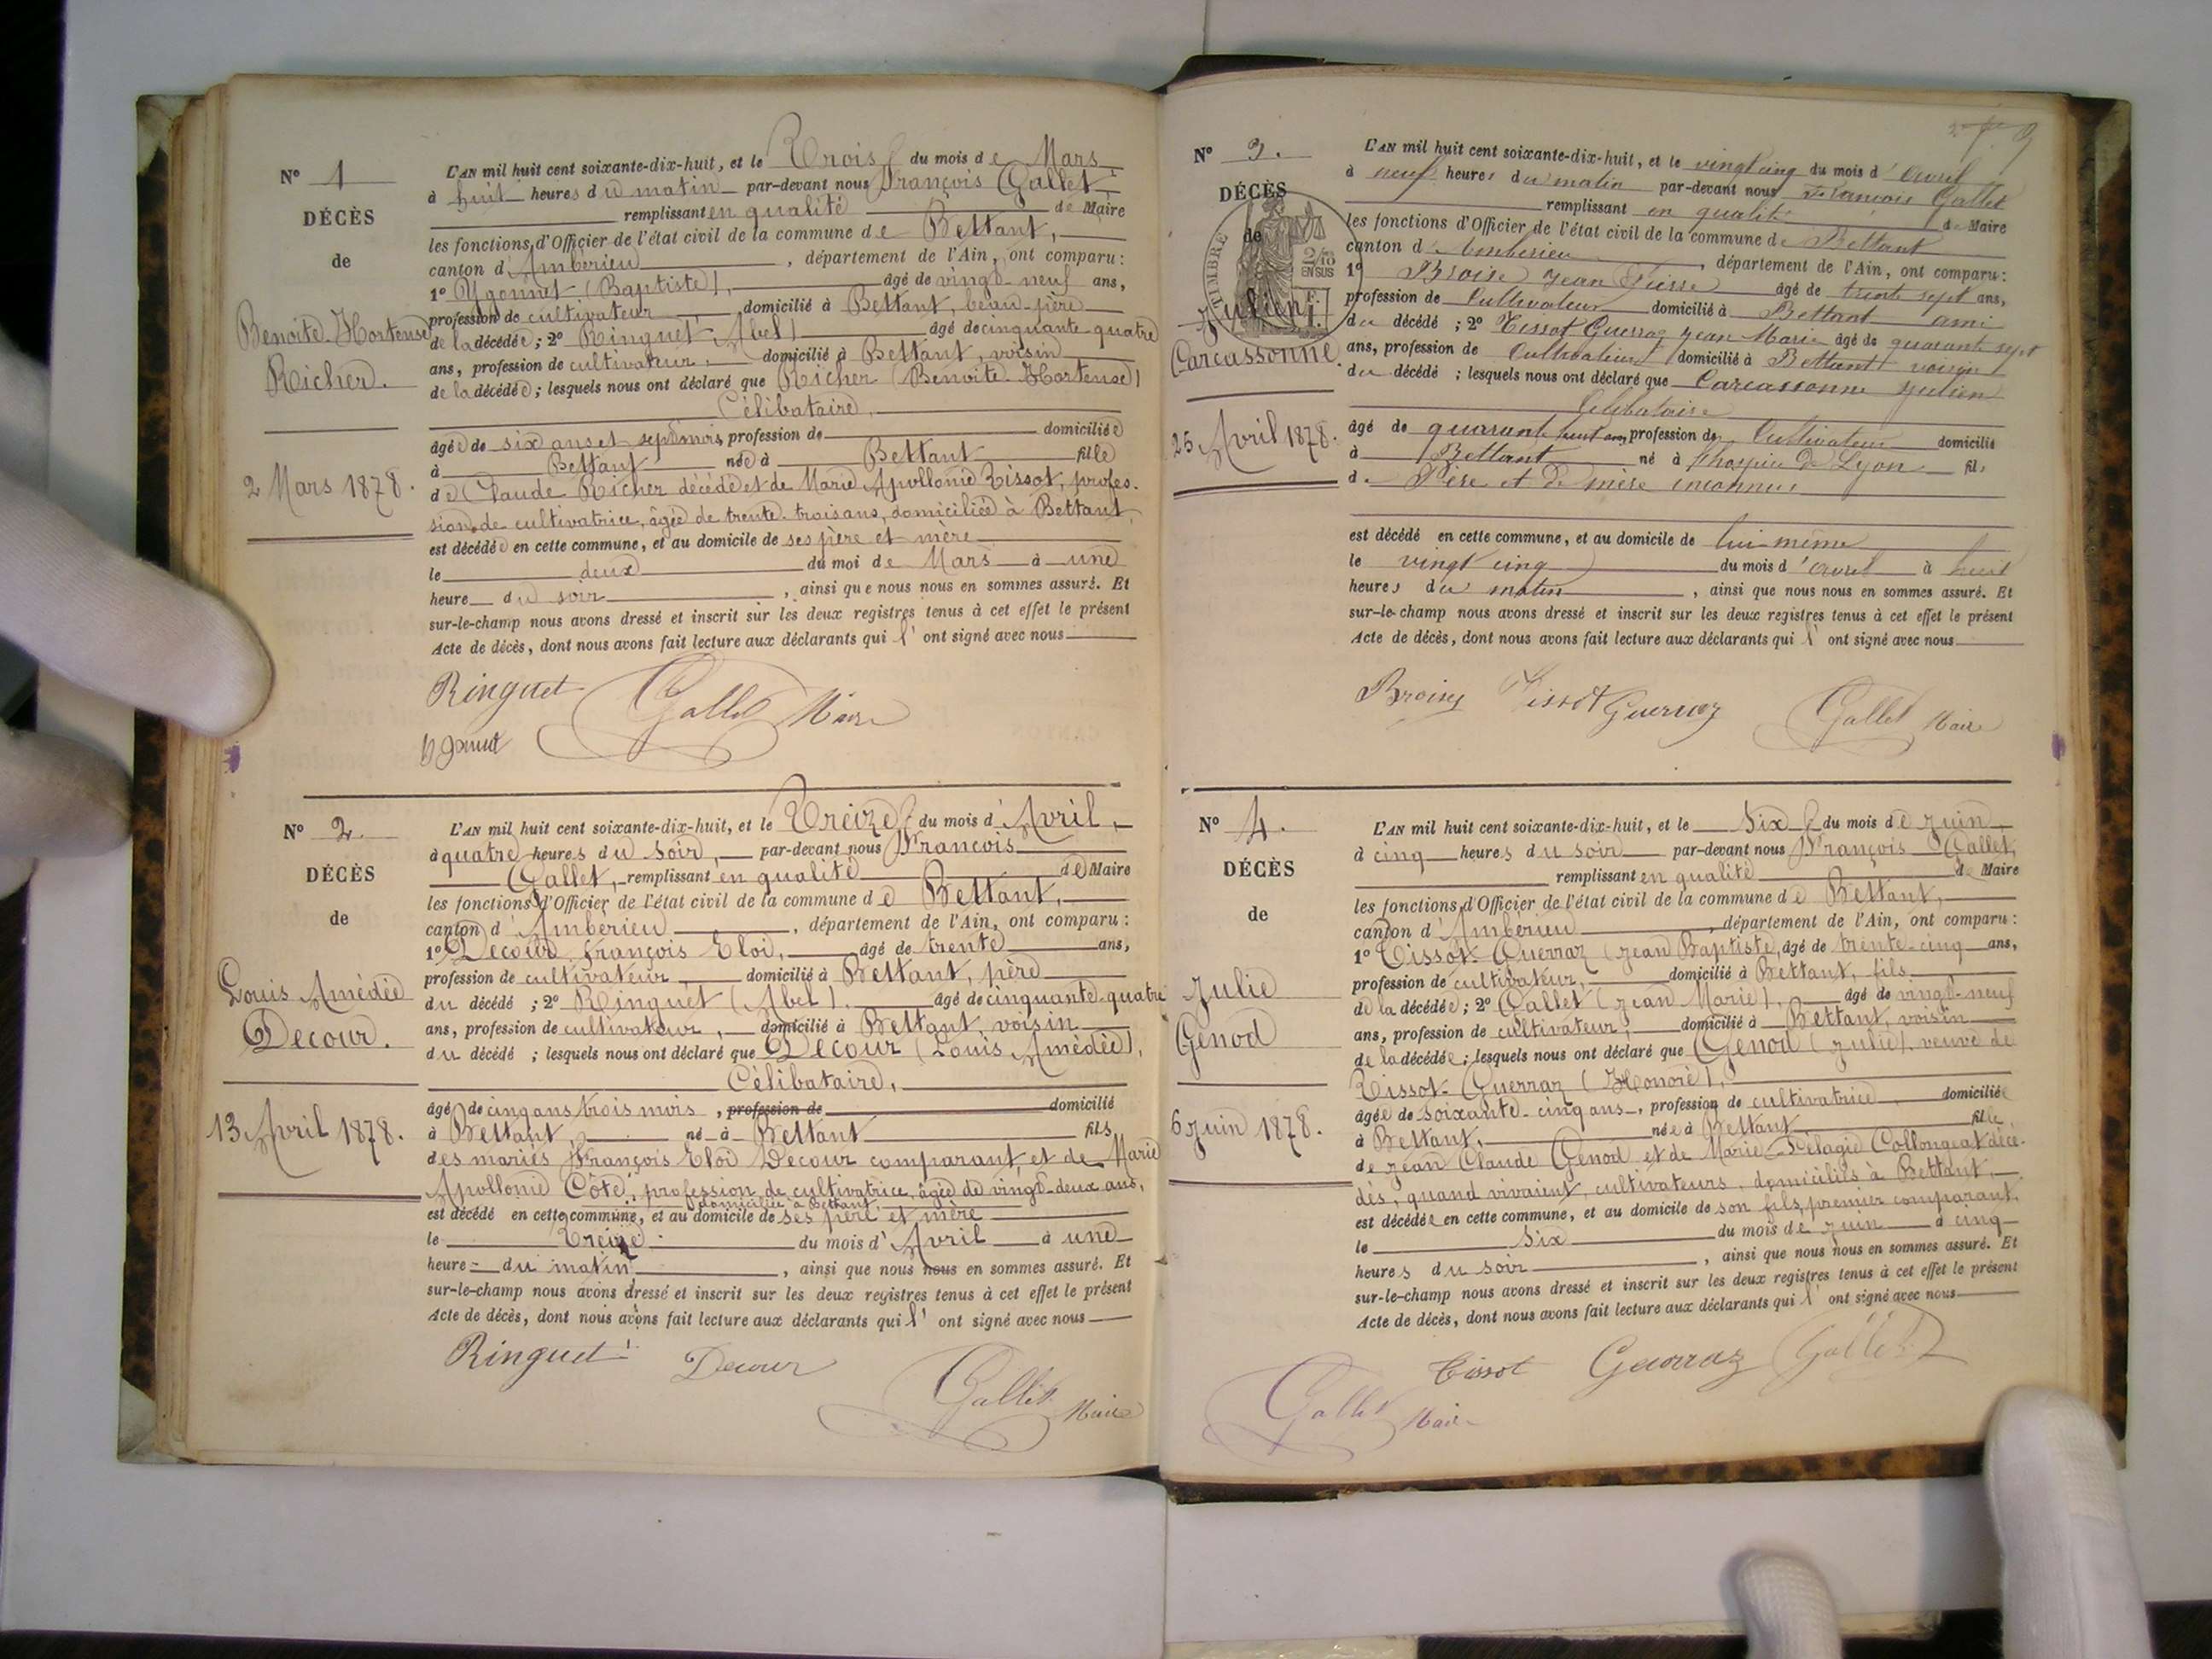 N° 1
DÉCÈS
de
Benoite Hortense
Richer.
2 Mars 1878.
L'AN mil huit cent soixante-dix-huit, et le Trois du mois de Mars
à huit heures du matin par-devant nous François Gallet,
remplissant en qualité de Maire
les fonctions d'Officier de l'état civil de la commune de Bettant,
canton d'Ambérieu, département de l'Ain, ont comparu :
1° Ygonnet (Baptiste), âgé de vingt-neuf ans,
profession de cultivateur domicilié à Bettant, beau-père
de la décédée ; 2° Ringuet Abel) âgé de cinquante quatre
ans, profession de cultivateur, domicilié à Bettant, voisin
de la décédée ; lesquels nous ont déclaré que Richer (Benoite Hortense)
Célibataire,
âgée de six ans et sept mois, profession de domiciliée
à Bettant née à Bettant fille
de Claude Richer décédé et de Marie Apollonie Tissot, profes-
sion de cultivatrice, âgée de trente-trois ans, domiciliée à Bettant,
est décédée en cette commune, et au domicile de ses père et mère
le deux du moi de Mars à une
heure du soir, ainsi que nous nous en sommes assuré. Et
sur-le-champ nous avons dressé et inscrit sur les deux registres tenus à cet effet le présent
Acte de décès, dont nous avons fait lecture aux déclarants qui l'ont signé avec nous
Ringuet Gallet Maire
Ygonnet
N° 2.
DÉCÈS
de
Louis Amédée
Decour.
13 Avril 1878.
L'AN mil huit cent soixante-dix-huit, et le Treize du mois d'Avril,
à quatre heures du soir, par-devant nous François
Gallet, remplissant en qualité de Maire
les fonctions d'Officier de l'état civil de la commune de Bettant,
canton d'Ambérieu, département de l'Ain, ont comparu :
1° Decour François Eloi, âgé de trente ans,
profession de cultivateur domicilié à Bettant, père
du décédé ; 2° Ringuet (Abel), âgé de cinquante-quatre
ans, profession de cultivateur, domicilié à Bettant, voisin
du décédé ; lesquels nous ont déclaré que Decour (Louis Amédée),
Célibataire,
âgé de cinq ans trois mois, profession de domicilié
à Bettant, né à Bettant fils
des mariés François Eloi Decour comparant et de Marie
Apollonie Côte, profession de cultivatrice, âgée de vingt-deux ans,
domiciliée à Bettant
est décédé en cette commune, et au domicile de ses père et mère
le treize du mois d'Avril à une
heure du matin, ainsi que nous nous en sommes assuré. Et
sur-le-champ nous avons dressé et inscrit sur les deux registres tenus à cet effet le présent
Acte de décès, dont nous avons fait lecture aux déclarants qui l'ont signé avec nous
Ringuet Decour Gallet Maire
N° 3.
DÉCÈS
de
TIMBRE
2/10
EN SUS
Julien
Carcassonne.
25 Avril 1878.
L'AN mil huit cent soixante-dix-huit, et le vingt cinq du mois d'avril
à neuf heures du matin par-devant nous François Gallet
remplissant en qualité de Maire
les fonctions d'Officier de l'état civil de la commune de Bettant
canton d'Amberieu, département de l'Ain, ont comparu :
1° Broise Jean Pierre âgé de trente sept ans,
profession de Cultivateur domicilié à Bettant ami
du décédé ; 2° Tissot Guerraz Jean Marie âgé de quarante sept
ans, profession de Cultivateur domicilié à Bettant voisin
du décédé ; lesquels nous ont déclaré que Carcassonne Julien
Célibataire
âgé de quarante huit ans, profession de Cultivateur domicilié
à Bettant né à l'hospice de Lyon fils
de Père et de mère inconnus
est décédé en cette commune, et au domicile de lui-même
le vingt cinq du mois d'avril à huit
heures du matin, ainsi que nous nous en sommes assuré. Et
sur-le-champ nous avons dressé et inscrit sur les deux registres tenus à cet effet le présent
Acte de décès, dont nous avons fait lecture aux déclarants qui l'ont signé avec nous
Tissot Guerraz Gallet Maire
N° 4.
DÉCÈS
de
Julie
Genod
6 Juin 1878.
L'AN mil huit cent soixante-dix-huit, et le Six du mois de Juin,
à cinq heures du soir par-devant nous François Gallet,
remplissant en qualité de Maire
les fonctions d'Officier de l'état civil de la commune de Bettant,
canton d'Ambérieu, département de l'Ain, ont comparu :
1° Tissot-Guerraz (Jean Baptiste, âgé de trente-cinq ans,
profession de cultivateur, domicilié à Bettant, fils
de la décédée ; 2° Gallet (Jean Marie), âgé de vingt-neuf
ans, profession de cultivateur, domicilié à Bettant, voisin
de la décédée ; lesquels nous ont déclaré que Genod (Julie), veuve de
Tissot-Guerraz (Honoré),
âgée de soixante-cinq ans, profession de cultivatrice domiciliée
à Bettant, née à Bettant fille
de Jean Claude Genod et de Marie-Pélagie Collongeat décé-
dés, quand vivaient, cultivateurs, domiciliés à Bettant,
est décédée en cette commune, et au domicile de son fils, premier comparant,
le Six du mois de Juin à cinq
heures du soir, ainsi que nous nous en sommes assuré. Et
sur-le-champ nous avons dressé et inscrit sur les deux registres tenus à cet effet le présent
Acte de décès, dont nous avons fait lecture aux déclarants qui l'ont signé avec nous
Tissot Guerraz Gallet
Gallet Maire